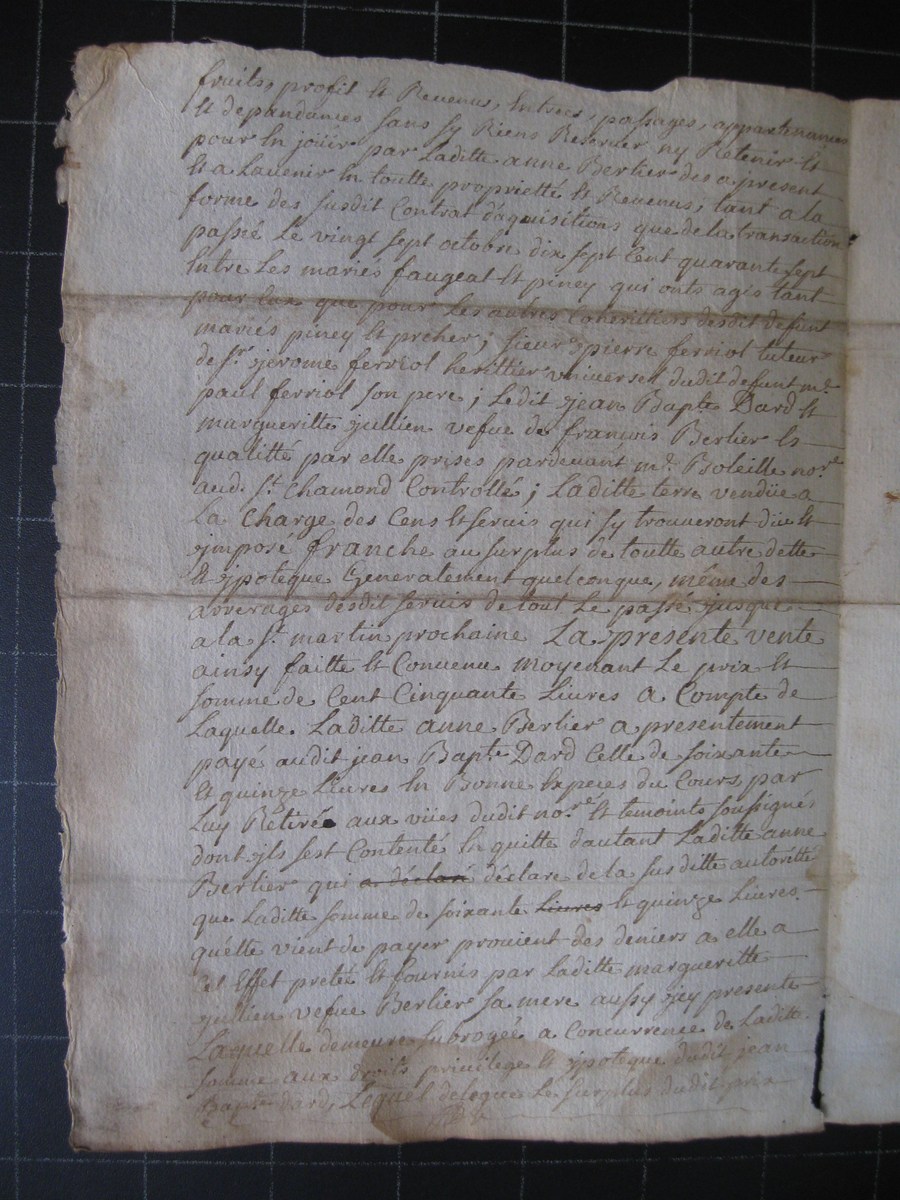 fruits, profit Et Revenus, Entrées, passages, appartenances
Et dependances sans sy Riens Reserver ny Retenir Et
pour En joüir par Laditte anne Berlier des a present
Et a Lavenir En toutte proprietté Et Revenus, tant a la
forme des susdit Contrat d'aquisitions que de la transaction
passée Le vingt sept octobre dix sept Cent quarante sept
Entre Les mariés faugeat Et piney qui onts agis tant
pour Eux que pour Les autres Coherittiers desdit defunt
mariés piney Et preher; sieur pierre ferriol tuteur
de sr. jerome ferriol herittier universel dudit defunt me.
paul ferriol son pere; Ledit jean Bapte Dard Et
margueritte jullien vefue de françois Berlier Es
qualitté par elle prises pardevant me. Boleille nore.
aud. st. Chamond Controllé; Laditte terre vendüe a
La Charge des Cens Et servis qui sy trouveront dü Et
jmposé franche au surplus de toutte autre dette
Et ypoteque Generalement quelconque, même des
arrerages desdit servis de tout Le passé jusque
a la st. martin prochaine La presente vente
ainsy faitte Et Convenue moyenant Le prix Et
somme de Cent Cinquante Livres a Compte de
Laquelle Laditte anne Berlier a presentement
payé audit jean Bapte Dard Celle de soixante
Et quinze Livres En Bonne Especes du Cours, par
Luy Retirée aux vües dudit nore. Et temoints soussignés
dont jls sest Contenté En quitte d'autant Laditte anne
Berlier qui a déclaré déclare de la susditte autorétté
que Laditte somme de soixante Livres Et quinze Livres
quélle vient de payer provient des deniers a elle a
Cet Effet pretée Et fournis par Laditte margueritte
jullien vefue Berlier sa mere aussy jcy presente
Laquelle demeure subrogée a Concurrence de Laditte
somme aux droits privilege Et ypoteque dudit jean
Bapte Dard, Lequel delegue Le surplus dudit prix